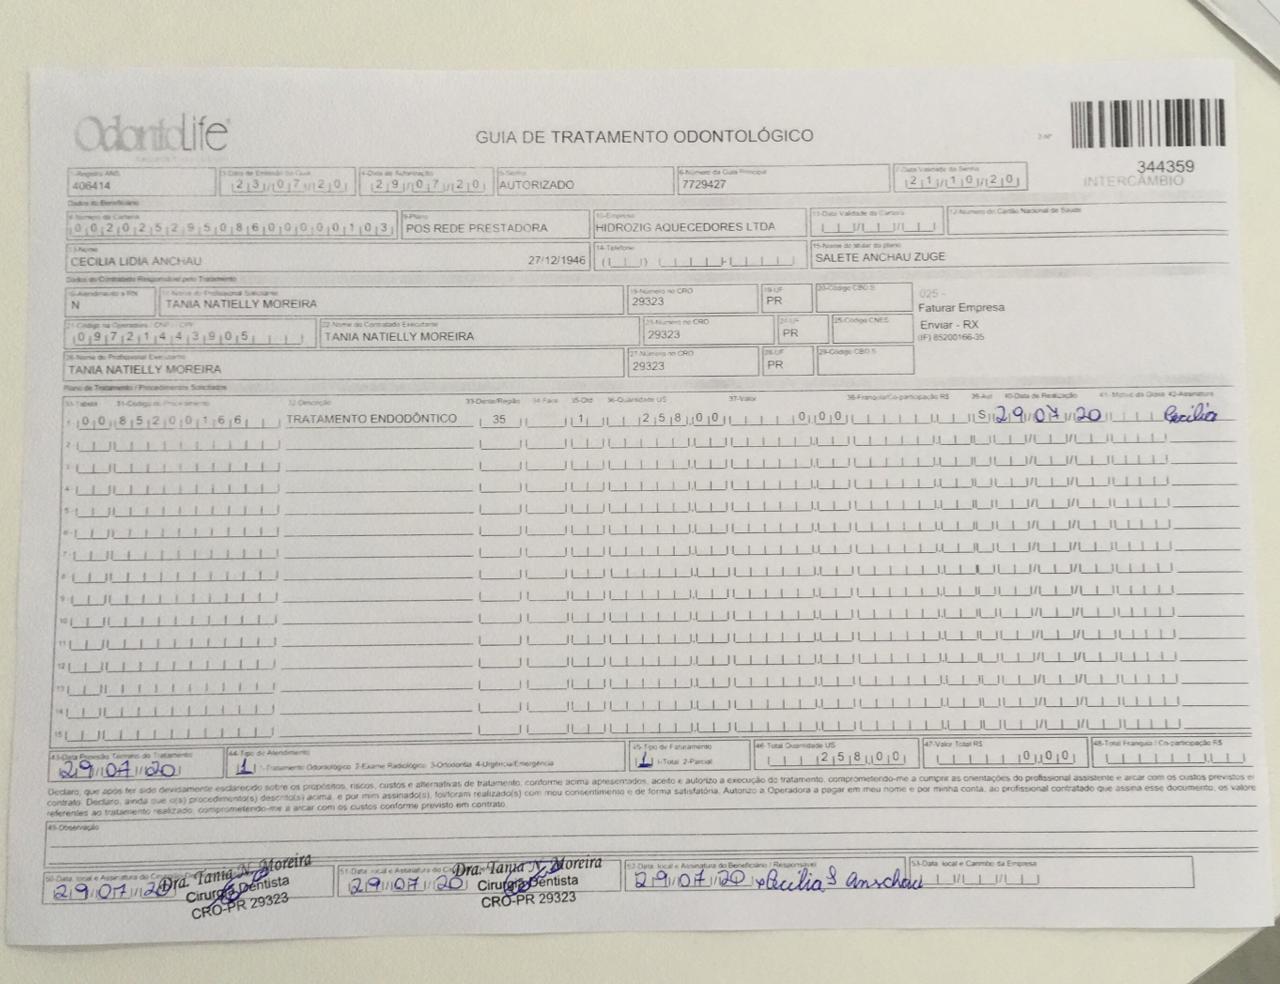 OdontoLife
GUIA DE TRATAMENTO ODONTOLÓGICO
2-Nº
344359
INTERCÂMBIO
1-Registro ANS
406414
3-Data de Emissão da Guia
23/07/20
4-Data de Autorização
29/07/20
5-Senha
AUTORIZADO
6-Número da Guia Principal
7729427
7-Data Validade da Senha
21/10/20
Dados do Beneficiário
8-Número da Carteira
00202529508600000103
9-Plano
POS REDE PRESTADORA
10-Empresa
HIDROZIG AQUECEDORES LTDA
11-Data Validade da Carteira
12-Número do Cartão Nacional de Saúde
13-Nome
CECILIA LIDIA ANCHAU 27/12/1946
14-Telefone
15-Nome do titular do plano
SALETE ANCHAU ZUGE
Dados do Contratado Responsável pelo Tratamento
16-Atendimento a RN
N
17-Nome do Profissional Solicitante
TANIA NATIELLY MOREIRA
18-Número no CRO
29323
19-UF
PR
20-Código CBO S
025 -
Faturar Empresa
Enviar - RX
(IF) 85200166-35
21-Código na Operadora / CNPJ / CPF
09721443905
22-Nome do Contratado Executante
TANIA NATIELLY MOREIRA
23-Número no CRO
29323
24-UF
PR
25-Código CNES
26-Nome do Profissional Executante
TANIA NATIELLY MOREIRA
27-Número no CRO
29323
28-UF
PR
29-Código CBO S
Plano de Tratamento / Procedimentos Solicitados
30-Tabela 31-Código do Procedimento 32-Descrição 33-Dente/Região 34-Face 35-Qtd 36-Quantidade US 37-Valor 38-Franquia/Co-participação R$ 39-Aut 40-Data de Realização 41-Motivo da Glosa 42-Assinatura
1- 00 85200166 TRATAMENTO ENDODÔNTICO 35 1 258,00 0,00 S 29/07/20 Cecilia
2-
3-
4-
5-
6-
7-
8-
9-
10-
11-
12-
13-
14-
15-
43-Data Previsão Término do Tratamento
29/07/20
44-Tipo de Atendimento
1 1-Tratamento Odontológico 2-Exame Radiológico 3-Ortodontia 4-Urgência/Emergência
45-Tipo de Faturamento
1 1-Total 2-Parcial
46-Total Quantidade US
258,00
47-Valor Total R$
0,00
48-Total Franquia / Co-participação R$
Declaro, que após ter sido devidamente esclarecido sobre os propósitos, riscos, custos e alternativas de tratamento, conforme acima apresentados, aceito e autorizo a execução do tratamento, comprometendo-me a cumprir as orientações do profissional assistente e arcar com os custos previstos em
contrato. Declaro, ainda que o(s) procedimento(s) descrito(s) acima, e por mim assinado(s), foi/foram realizado(s) com meu consentimento e de forma satisfatória. Autorizo a Operadora a pagar em meu nome e por minha conta, ao profissional contratado que assina esse documento, os valores
referentes ao tratamento realizado, comprometendo-me a arcar com os custos conforme previsto em contrato.
49-Observação
29/07/20
Dra. Tania N. Moreira
Cirurgiã Dentista
CRO-PR 29323
29/07/20
Dra. Tania N. Moreira
Cirurgiã Dentista
CRO-PR 29323
52-Data, local e Assinatura do Beneficiário / Responsável
29/07/20 x Cecilia Anschau
53-Data, local e Carimbo da Empresa